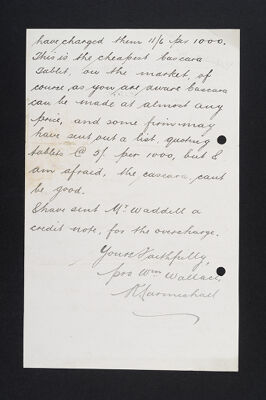 have charged them 11/6 per 1000.
This is the cheapest Cascara
Tablet, on the market, of
course, as you are aware Cascara
can be made at almost any
price, and some firm may
have sent out a list, quoting
tablets @ 5/- per 1000, but I
am afraid, the cascara, cant
be good.
I have sent Mr Waddell a
credit note, for the overcharge.
Yours Faithfully,
pro Wm Wallace,
R Carmichael